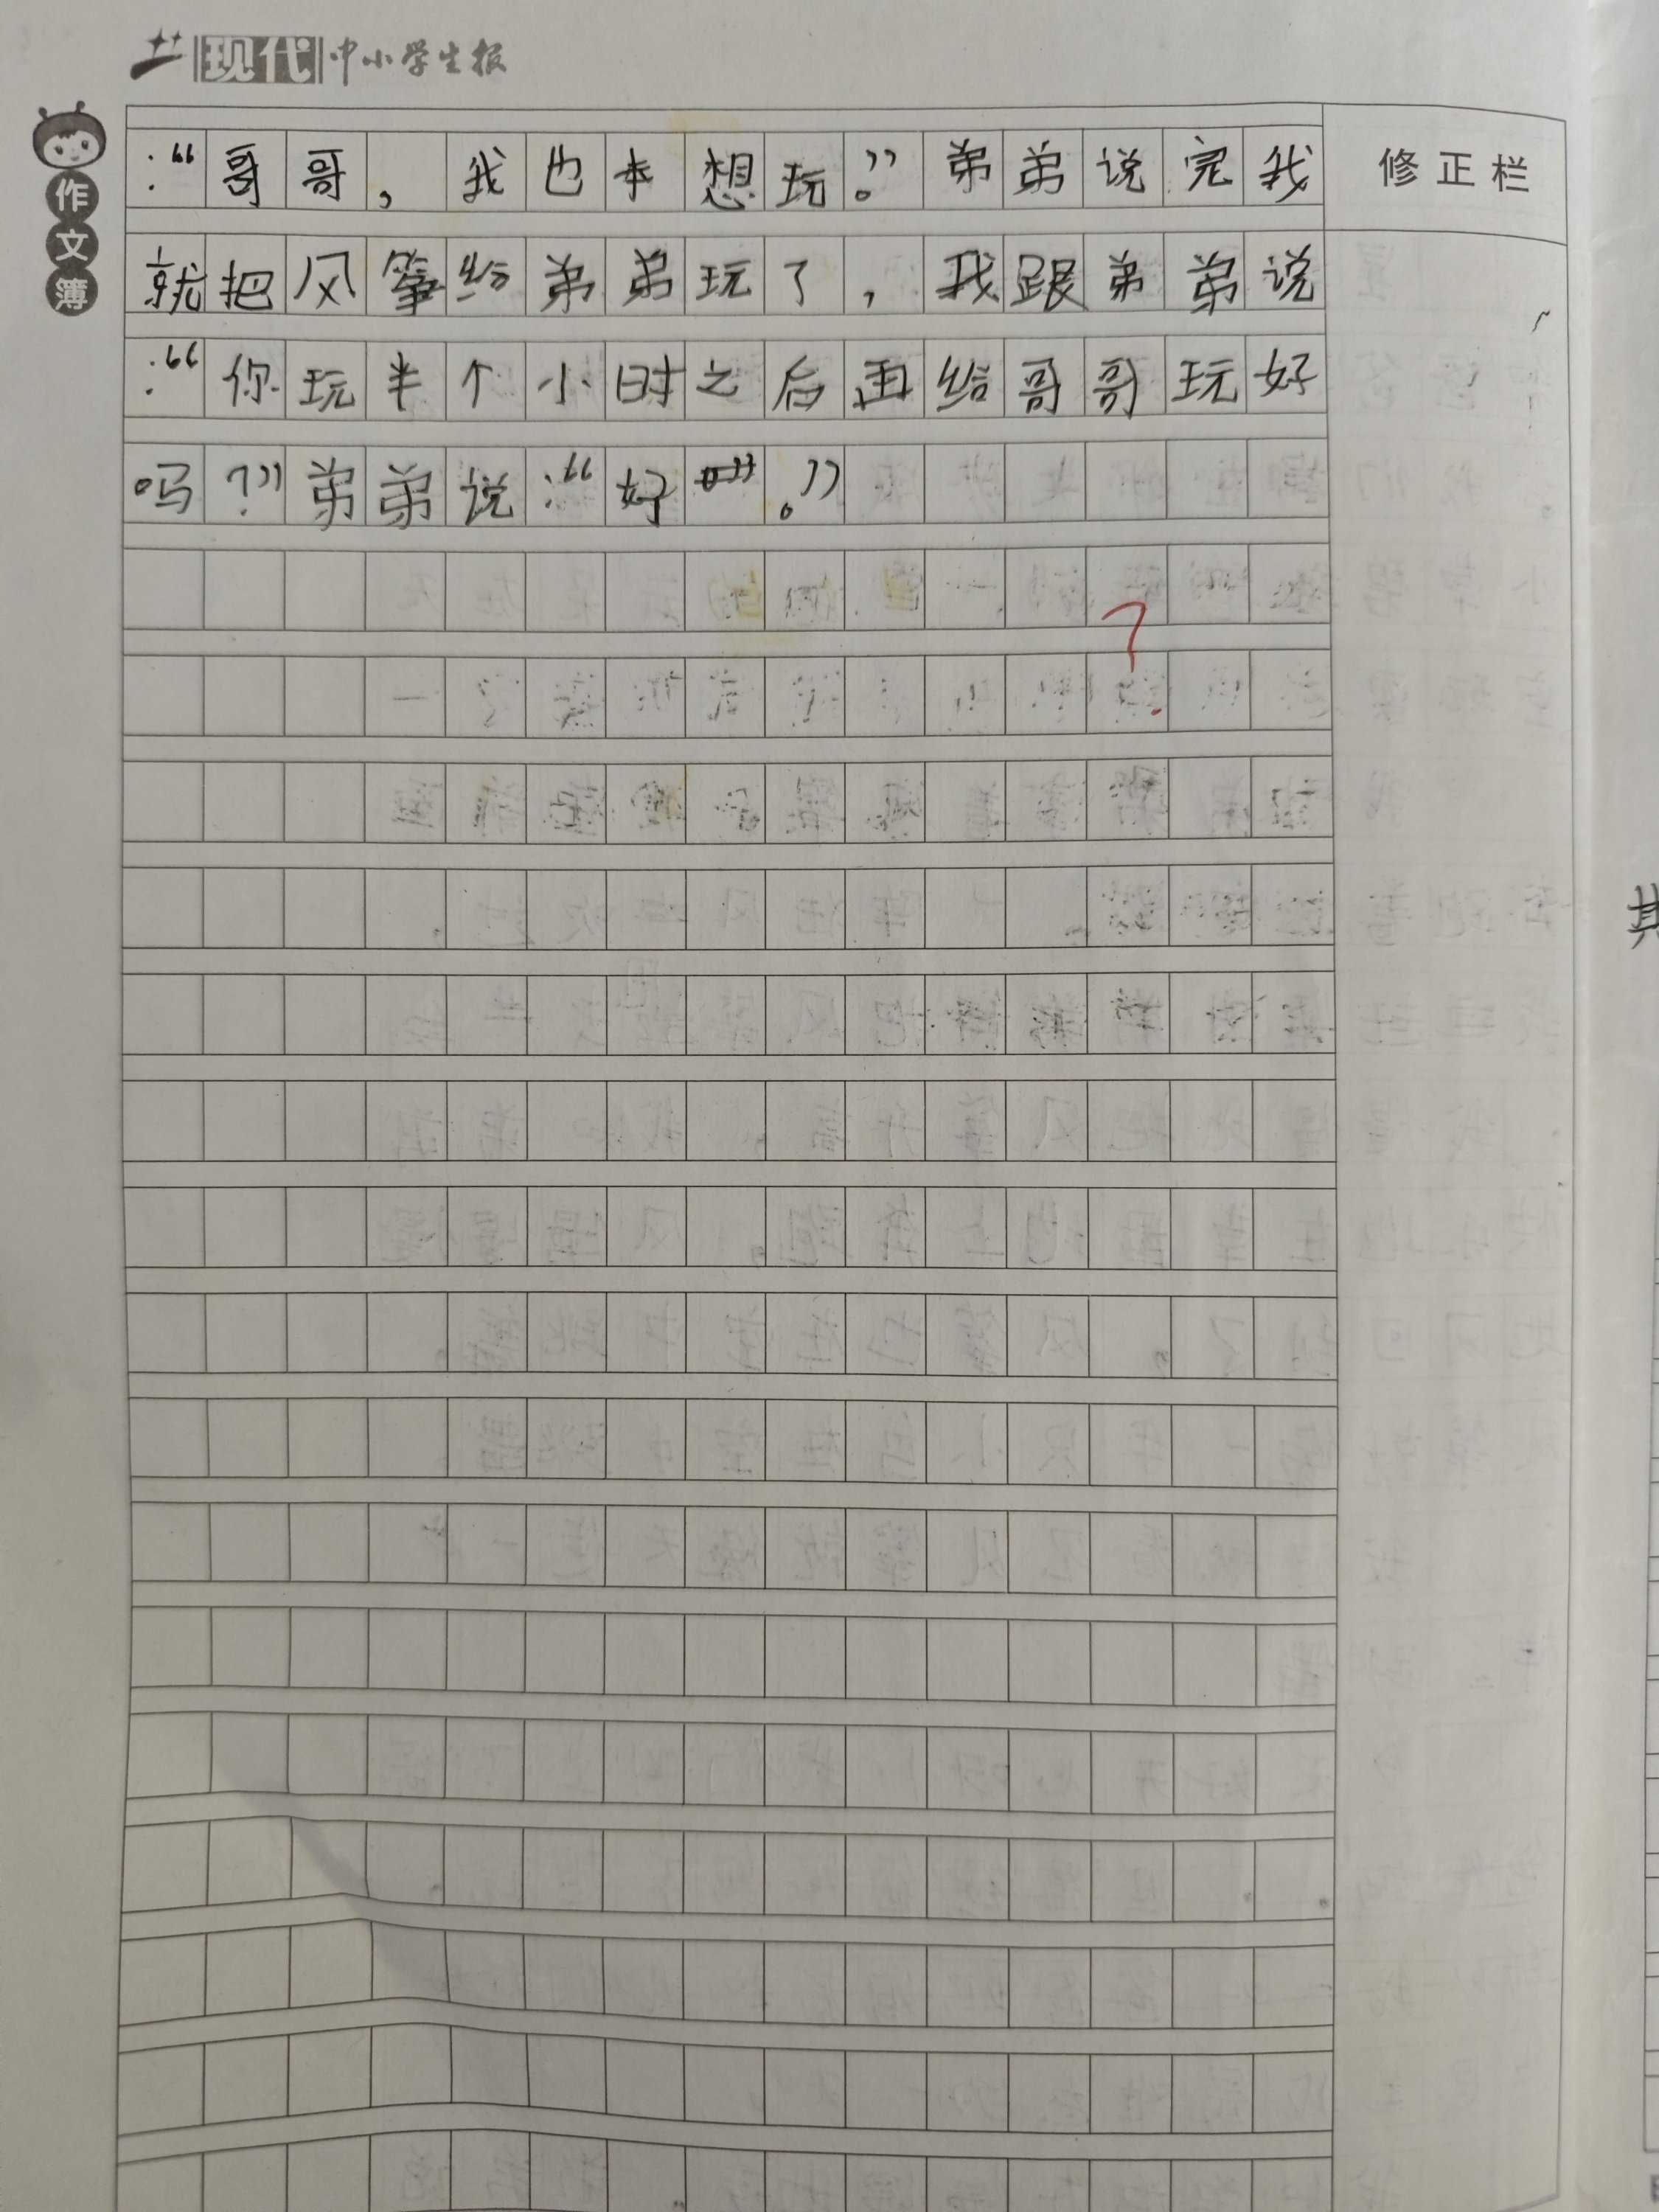 现代中小学生报
作文簿
修正栏
:“哥哥,我也想玩。”弟弟说完我
就把风筝给弟弟玩了,我跟弟弟说
:“你玩半个小时之后再给哥哥玩好
吗?”弟弟说:“好。”
?
其